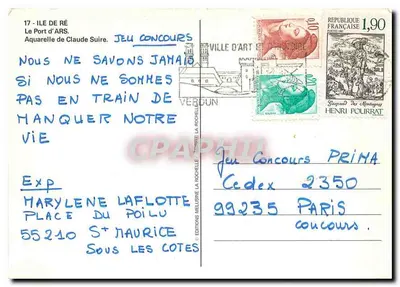 17 - ILE DE RÉ
Le Port d'ARS.
Aquarelle de Claude Suire.
JEU CONCOURS
NOUS NE SAVONS JAMAIS
SI NOUS NE SOMMES
PAS EN TRAIN DE
MANQUER NOTRE
VIE
Exp
MARYLENE LAFLOTTE
PLACE DU POILU
55210 St MAURICE
SOUS LES COTES
VILLE D'ART
VERDUN
0,10
RÉPUBLIQUE
FRANÇAISE
1,90
Gaspard des Montagnes
HENRI POURRAT
CPARAMA
Jeu Concours PRIMA
Cedex 2350
99235 PARIS
Concours.